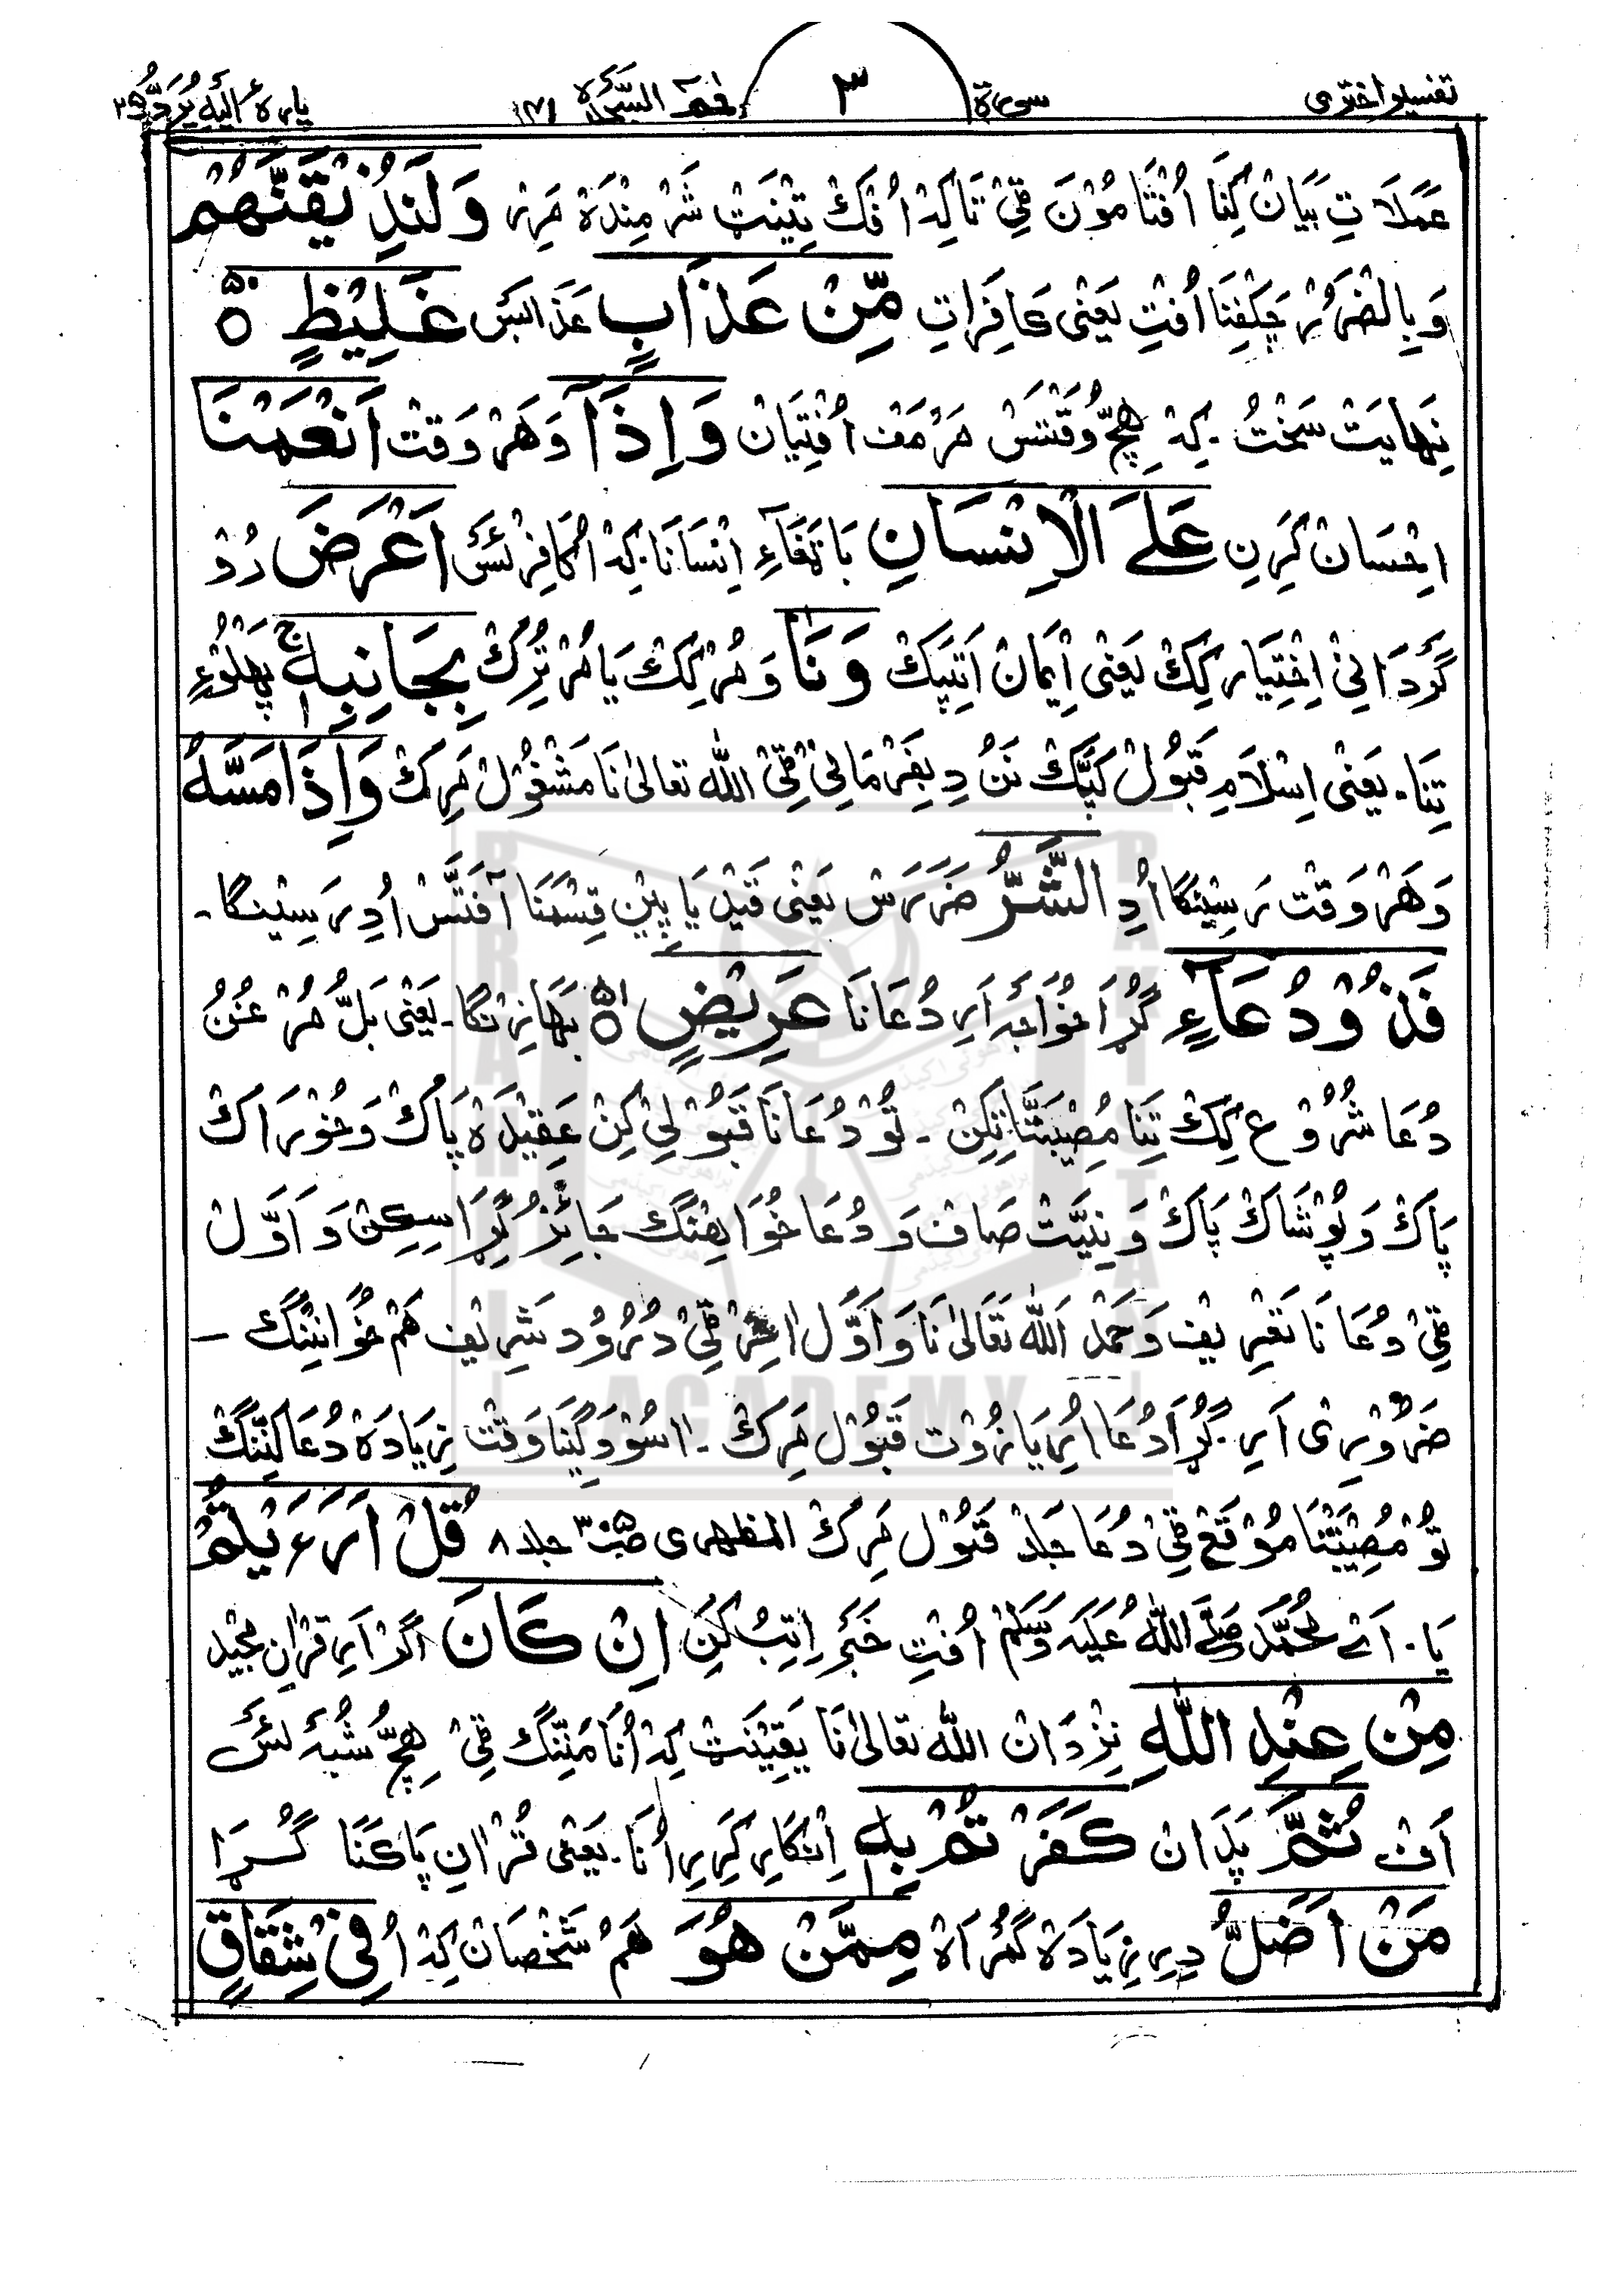 تفسیر اختری سورة ٣ حٰمٓ السَّجۡدَة ٤١ پاره اِلَیهِ یُرَدُّ ٢٥
عَملَاتِ بَیَانْ کِنَا اُفْتَا مُوْنَ ٹِیْ تَاکِه اُفْکْ تِیْنَتْ شَرْمِنْدَهْ مَرِرْ وَلَنُذِیْقَنَّهُمْ
وَبِالضَرُرْ چَکِفِنَا اُفْتِ یَعْنِی کَافِرَاتِ مِّنْ عَذَابٍ عَذَابَسَ غَلِیْظٍ ٥٠
نِهَایَتْ سَخْتُ۔ کِه هِچُّ وَقْتَسْ مَرُمَفْ اُفْتِیَانْ وَاِذَآ وَهَرْ وَقْتْ اَنْعَمْنَا
اِحْسَانْ کَرِنِ عَلَے الْاِنْسَانِ بَاتَغَآءِ اِنْسَانَا۔ کِه اُ کَافِرْئَسَ اَعْرَضَ رُوْ
گَرْدَانِیْ اِخْتِیَار کِکْ یَعْنِی اِیْمَانْ اَتَپِکْ وَنَاٰ وَمُرْ کِکْ یَا مُرْ تِرِکْ بِجَانِبِهٖ ج پَهْلُوْءِ
تِنَا۔ یَعْنِی اِسْلَامِ قَبُوْلْ کَپَّکْ نَنُ دِ بِفَرْمَانِیْ ٹِیْ اللّٰه تعالیٰ نَا مَشْغُوْلْ مَرِکْ وَاِذَا مَسَّهُ
وَهَرْ وَقْتْ رَسِیْنْگَا اُدِ الشَّرُّ ضَرَرَسْ یَعْنِی قَیْدِ یَا پِیْنِ قِسْمَنَا آفَتَسْ اُدِ رَسِیْنْگَا۔
فَذُوْ دُعَآءٍ گُڑَا خُوَاجَه اَرِ دُعَانَا عَرِیْضٍ ٥١ بَهَازنْگَا۔ یَعْنِی بَلُّ مُرْ غُنُ
دُعَا شُرُوْع کِکْ تِنَا مُصِیْبَتَّا تِکِنْ۔ تُوْ دُعَانَا قَبُوْلِیْ کِنْ عَقِیْدَهْ پَاکْ وَخُوْرَاکْ
پَاکْ وَپُوْشَاکْ پَاکْ وَنِیَّتْ صَافْ وَدُعَا خُوَاهِنْگْ جَائِزُ گِڑَاسِکِنْ وَاَوَّلْ
ٹِیْ دُعَا نَا تَعْرِیْف وَحَمْدْ اللّٰه تَعَالیٰ نَا وَاَوَّل اخِرْ ٹِیْ دُرُوْد شَرِیْف هَمْ خُوَانِنْگْ —
ضَرُوْرِی اَرِ۔ گُڑَا دُعَا اُرِ یَا زُوْت قَبُوْل مَرِکْ۔ اسُوْدَگِیْنَا وَقْتْ زِیَادَهْ دُعَا کَنِنْگْ
تُوْ مُصِیْبَتْنَا مُوْقَعْ ٹِیْ دُعَا جَلد قَبُوْل مَرِکْ المظهری جلد ٨ قُلْ اَرَءَیْتُمْ
پَا۔ اَے مُحَمَّد صَلَّے اللّٰهُ عَلَیْهِ وَسَلَّمْ اُفْتِ خَبَرْ اِتِبُ کَنِ اِنْ کَانَ اگر اَرِ قُرْاٰنِ مَجِیْد
مِنْ عِنْدِ اللّٰهِ نِزْدَانْ اللّٰه تعالیٰ نَا یَقِیْنَتْ کِه اُنَا مَنِّنْگْ ٹِیْ هِچُّ شُبْهَ ئَسَ
اَفْ ثُمَّ پِدَانْ کَفَرْتُمْ بِهٖ اِنْکَارِ کَرِرِ اُنَا۔ یَعْنِی قُرْاٰنِ پَاکَنَا گُڑَا
مَنْ اَضَلُّ دِرِ زِیَادَهْ گُمْرَاهْ مِمَّنْ هُوَ هَمْ شَخْصَانْ کِه اُ فِیْ شِقَاقٍ
BRAHUI ACADEMY PAKISTAN